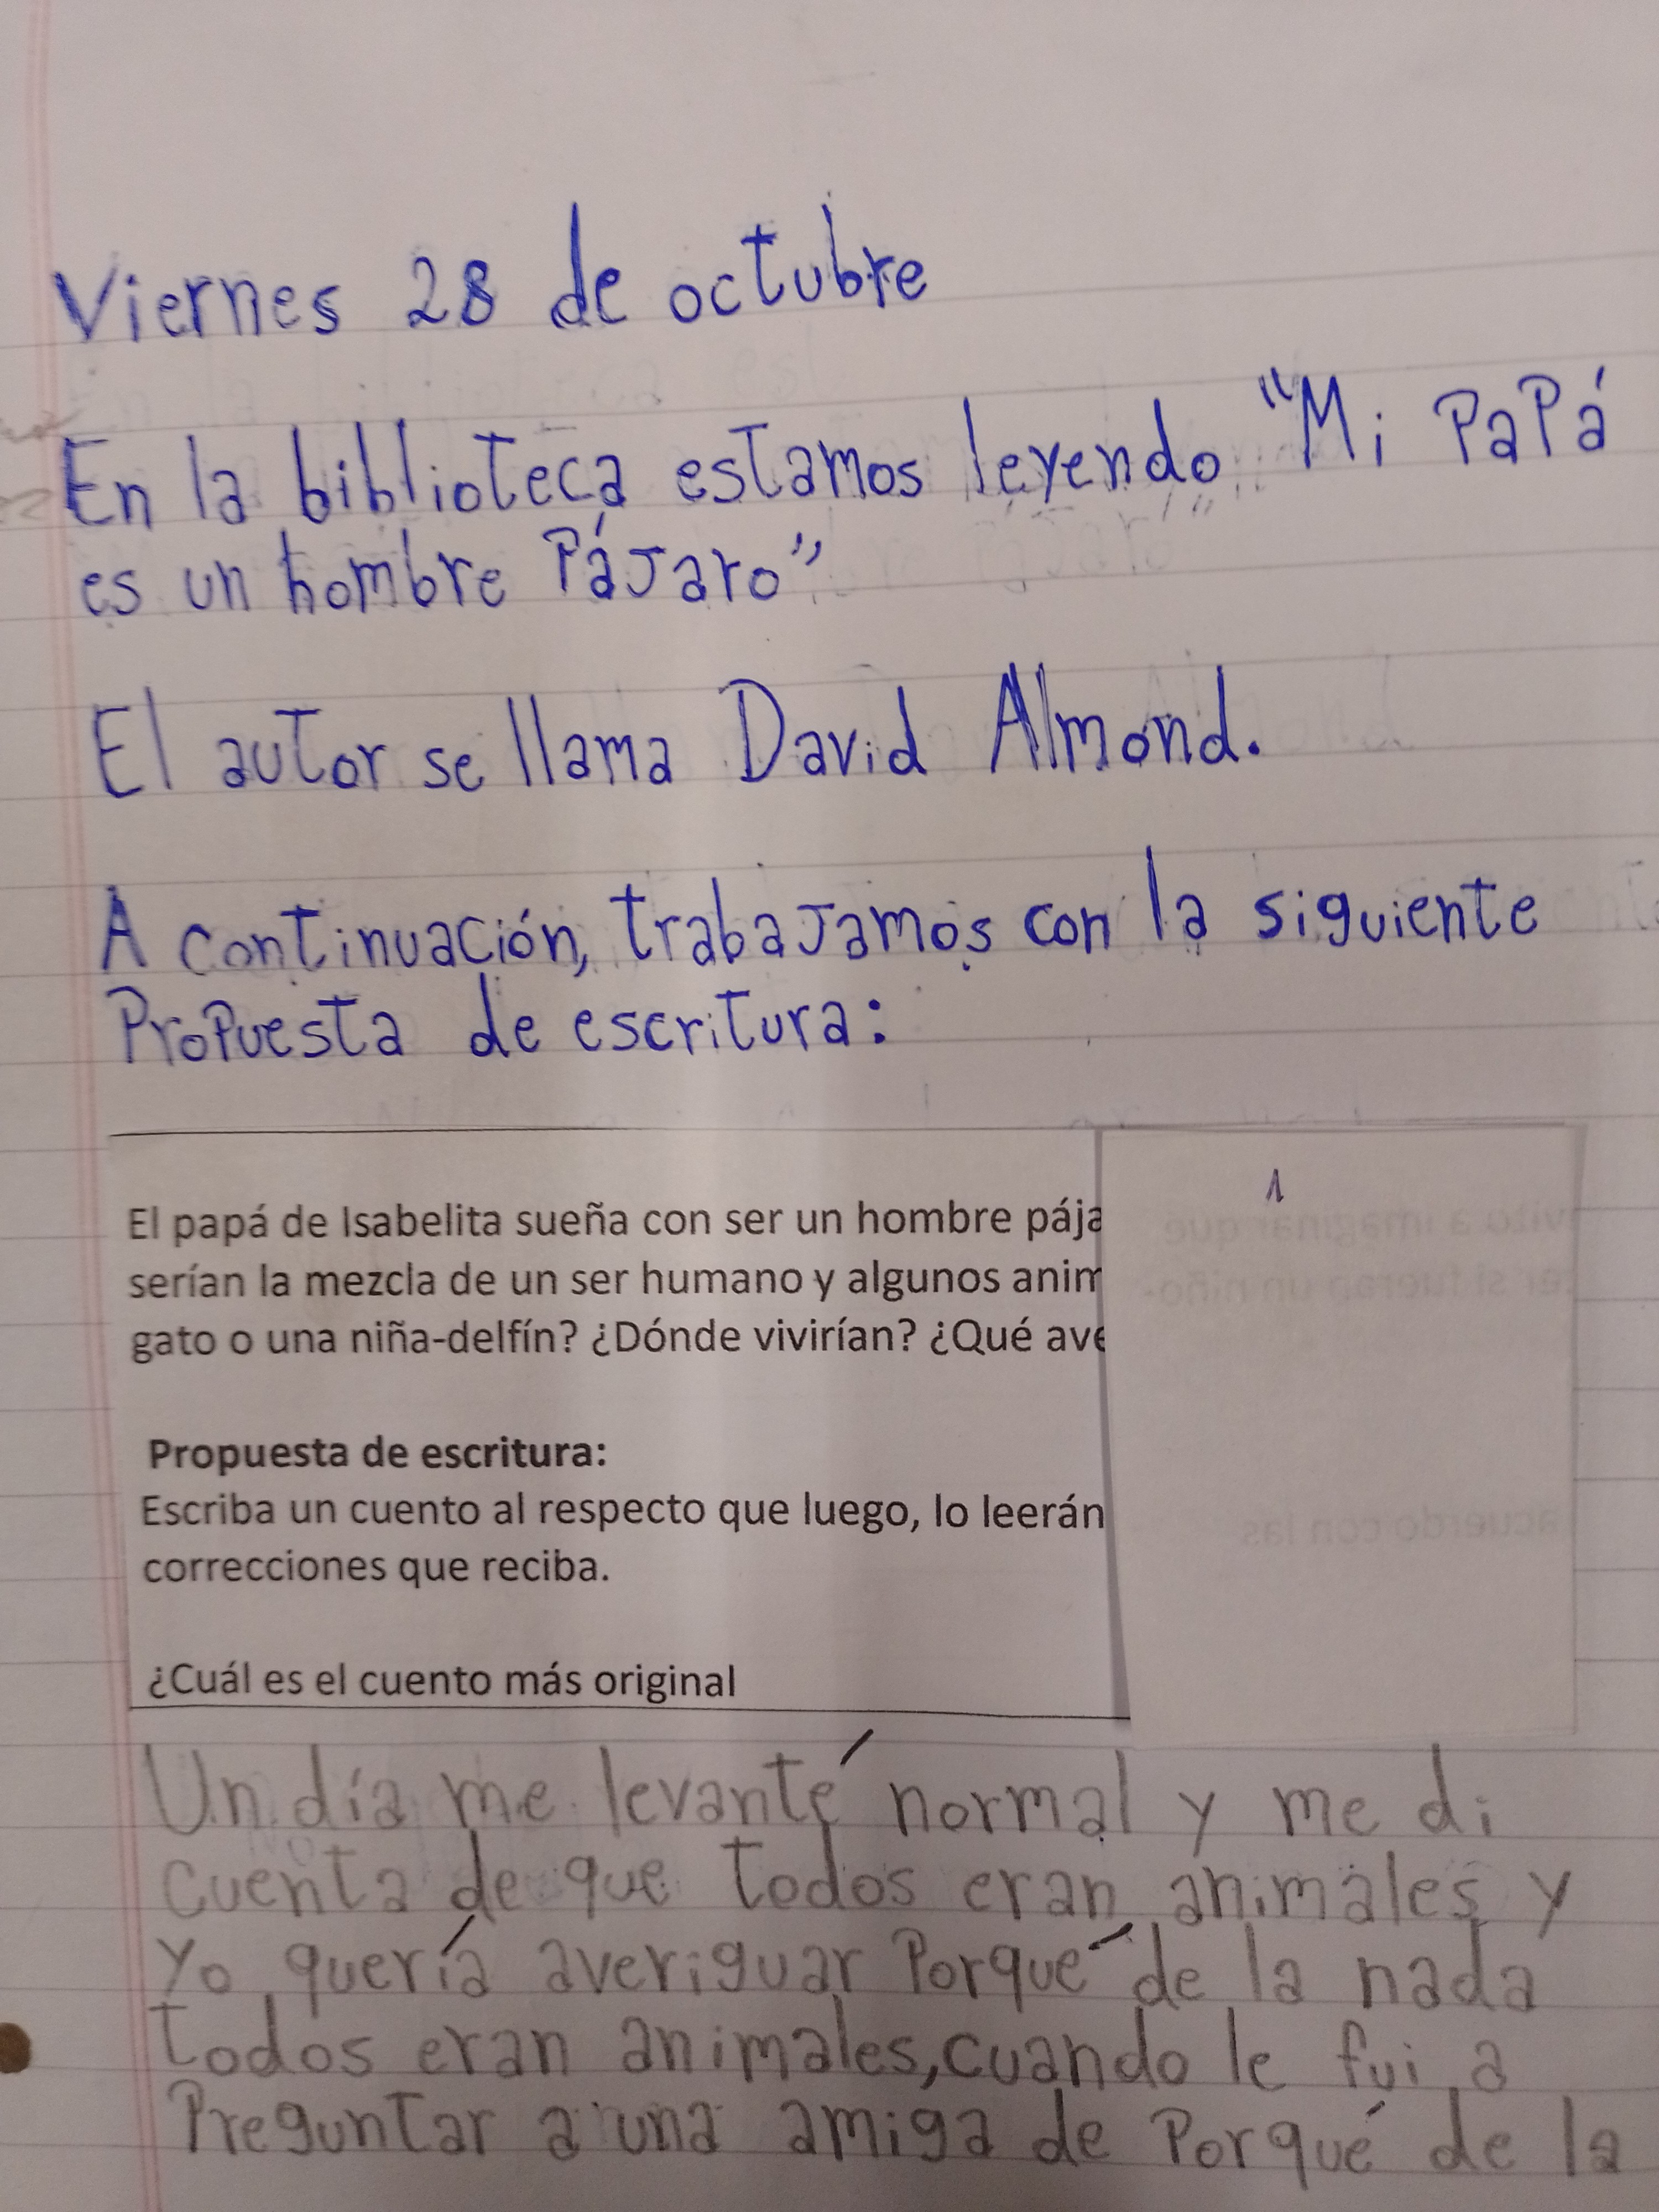 Viernes 28 de octubre
En la biblioteca estamos leyendo "Mi Papá
es un hombre Pájaro"
El autor se llama David Almond.
A continuación, trabajamos con la siguiente
Propuesta de escritura:
El papá de Isabelita sueña con ser un hombre pája
1
serían la mezcla de un ser humano y algunos anim
gato o una niña-delfín? ¿Dónde vivirían? ¿Qué ave
Propuesta de escritura:
Escriba un cuento al respecto que luego, lo leerán
correcciones que reciba.
¿Cuál es el cuento más original
Un día me levanté normal y me di
cuenta de que todos eran animales y
yo quería averiguar Porqué de la nada
todos eran animales, cuando le fui a
Preguntar a una amiga de Porqué de la